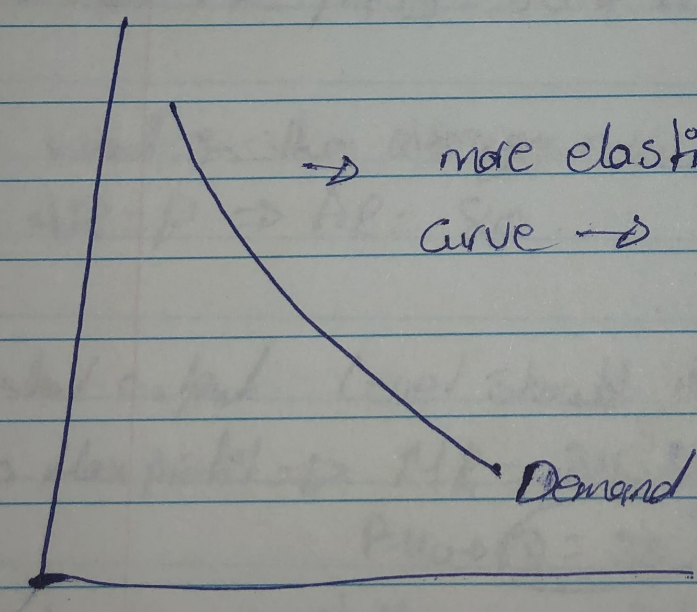 → more elasti
Curve →
Demand